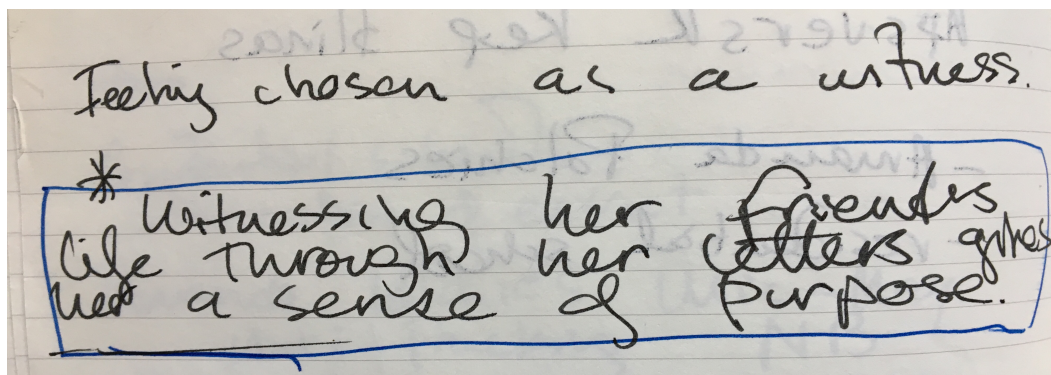 Feeling chosen as a witness.
* Witnessing her friends
life through her letters gives
her a sense of purpose.